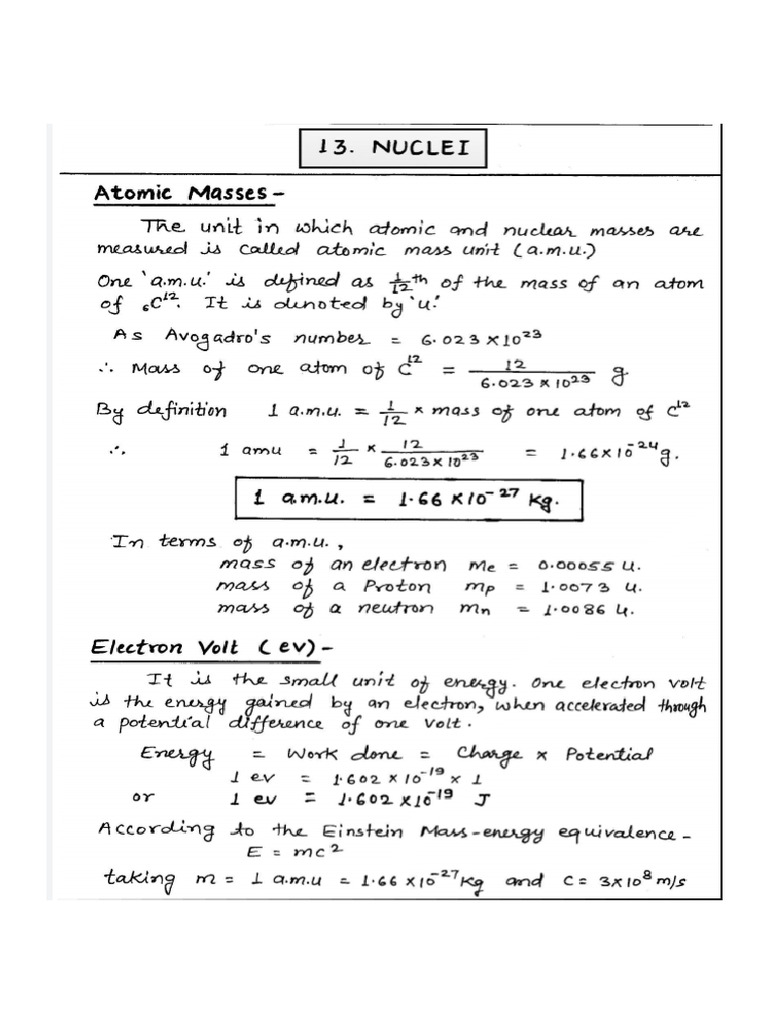 13. NUCLEI
Atomic Masses-
The unit in which atomic and nuclear masses are
measured is called atomic mass unit (a.m.u.)
One 'a.m.u.' is defined as 1/12 th of the mass of an atom
of ₆C¹². It is denoted by 'u'.
As Avogadro's number = 6.023 × 10²³
∴ Mass of one atom of C¹² = 12 / 6.023 × 10²³ g
By definition 1 a.m.u. = 1/12 × mass of one atom of C¹²
∴ 1 amu = 1/12 × 12 / 6.023 × 10²³ = 1.66 × 10⁻²⁴ g.
1 a.m.u. = 1.66 × 10⁻²⁷ kg.
In terms of a.m.u.,
mass of an electron me = 0.00055 u.
mass of a Proton mp = 1.0073 u.
mass of a neutron mn = 1.0086 u.
Electron Volt (ev)-
It is the small unit of energy. One electron volt
is the energy gained by an electron, when accelerated through
a potential difference of one volt.
Energy = Work done = Charge × Potential
1 ev = 1.602 × 10⁻¹⁹ × 1
or 1 ev = 1.602 × 10⁻¹⁹ J
According to the Einstein Mass-energy equivalence-
E = mc²
taking m = 1 a.m.u = 1.66 × 10⁻²⁷ kg and c = 3 × 10⁸ m/s